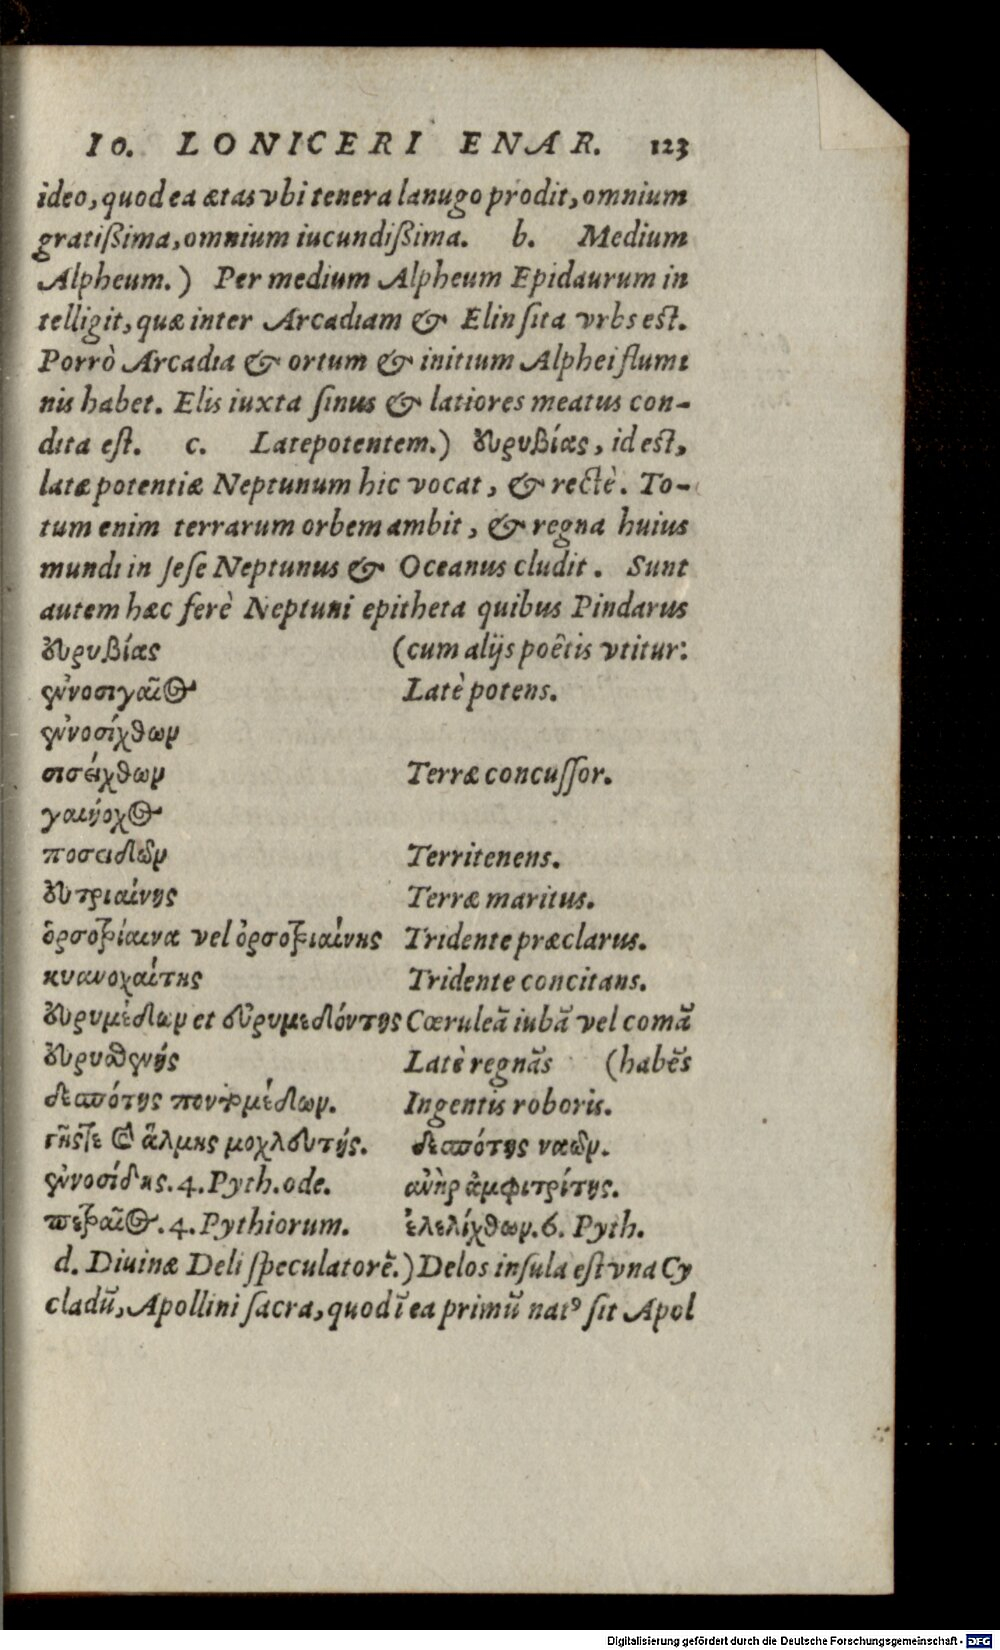 IO. LONICERI ENAR. 123
ideo, quod ea ætas vbi tenera lanugo prodit, omnium
gratißima, omnium iucundißima. b. Medium
Alpheum.) Per medium Alpheum Epidaurum in
telligit, quæ inter Arcadiam & Elin ſita vrbs est.
Porrò Arcadia & ortum & initium Alphei flumi
nis habet. Elis iuxta ſinus & latiores meatus con-
dita eſt. c. Latepotentem.) ευρυβίας, id est,
latæ potentiæ Neptunum hic vocat, & rectè. To-
tum enim terrarum orbem ambit, & regna huius
mundi in ſeſe Neptunus & Oceanus cludit. Sunt
autem hæc ferè Neptuni epitheta quibus Pindarus
ευρυβίας (cum alijs poëtis vtitur:
ἐννοσιγαῖος Latè potens.
ἐννοσίχθων
σισείχθων Terræ concuſſor.
γαιήοχος
ποσειδῶν Territenens.
ευτριαίνης Terræ maritus.
ὀρσοτρίαινα vel ὀρσοτριαίνης Tridente præclarus.
κυανοχαίτης Tridente concitans.
ευρυμέδων et εὐρυμεδόντης Cœruleā iubā vel comā
ευρυσθενής Latè regnās (habēs
δεσπότης ποντομέδων. Ingentis roboris.
γῆς τε καὶ ἅλμης μοχλευτής. δεσπότης ναῶν.
ἐννοσίδης. 4. Pyth. ode. ἀνὴρ ἀμφιτρίτης.
πετραῖος. 4. Pythiorum. ἐλελίχθων. 6. Pyth.
d. Diuinæ Deli ſpeculatorē.) Delos inſula eſt vna Cy
cladū, Apollini ſacra, quod ī ea primū natꝰ ſit Apol
Digitalisierung gefördert durch die Deutsche Forschungsgemeinschaft - DFG